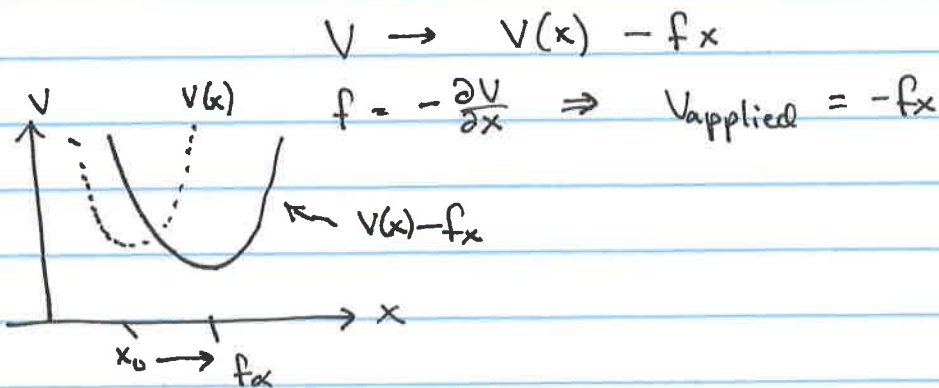 V → V(x) - fx
f = - ∂V/∂x ⇒ Vapplied = -fx
V
V(x)
V(x)-fx
x
x₀ → fα